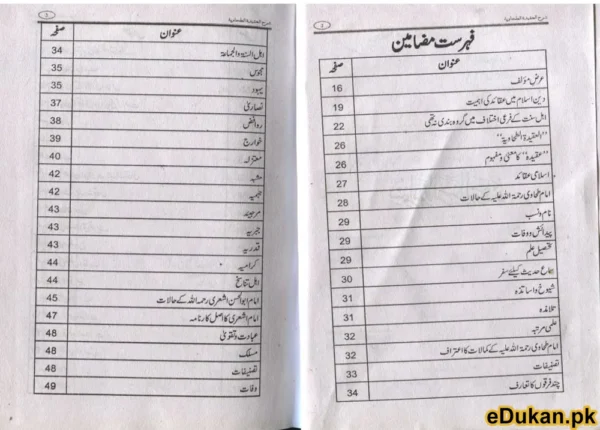 فہرست مضامین
عنوان صفحہ
عرض مؤلف 16
دین اسلام میں عقائد کی اہمیت 19
اہل سنت کے فرعی اختلاف میں گروہ بندی نہ تھی 22
"العقیدۃ الطحاویۃ" 26
"عقیدہ" کا معنی و مفہوم 26
اسلامی عقائد 27
امام طحاوی رحمۃ اللہ علیہ کے حالات 28
نام و نسب 29
پیدائش و وفات 29
تحصیل علم 29
سماع حدیث کیلئے سفر 30
شیوخ و اساتذہ 31
تلامذہ 31
علمی مرتبہ 32
امام طحاوی رحمۃ اللہ علیہ کے کمالات کا اعتراف 32
تصنیفات 33
چند فرقوں کا تعارف 34
عنوان صفحہ
اہل السنۃ والجماعۃ 34
مجوس 35
یہود 35
نصاریٰ 37
روافض 38
خوارج 39
معتزلہ 40
مشبہ 42
جہمیہ 42
مرجیئہ 43
جبریہ 43
قدریہ 43
کرامیہ 44
اہل تناسخ 44
امام ابوالحسن اشعری رحمہ اللہ کے حالات 45
امام اشعری کا اصل کارنامہ 47
عبادت و تقویٰ 48
مسلک 48
تصنیفات 48
وفات 49
eDukan.pk